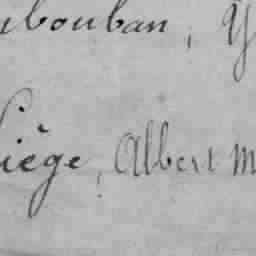 bouban, Y
Liège, Albert M